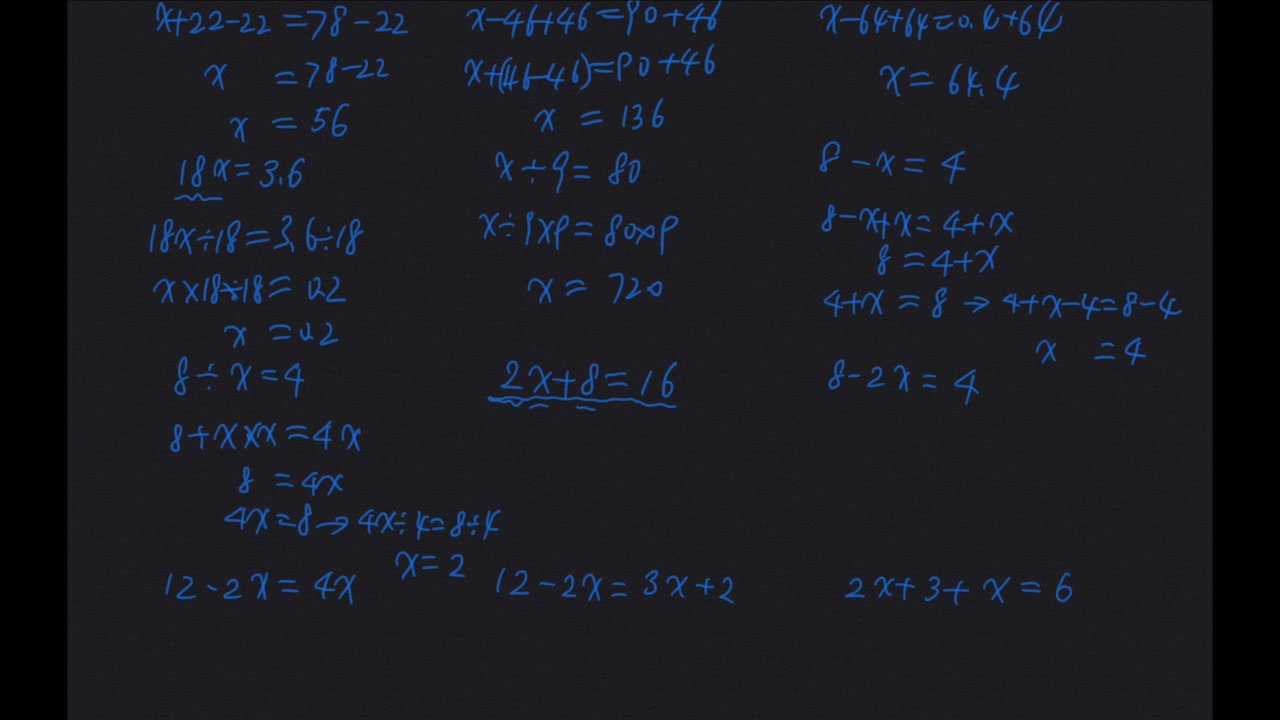 x+22-22=78-22
x =78-22
x =56
18x=3.6
18x÷18=3.6÷18
x×18÷18=0.2
x =0.2
8÷x=4
8÷x×x=4x
8 =4x
4x=8→4x÷4=8÷4
x=2
12-2x=4x
x-46+46=90+46
x+(46-46)=90+46
x =136
x÷9=80
x÷9×9=80×9
x=720
2x+8=16
12-2x=3x+2
x-64+64=0.4+64
x=64.4
8-x=4
8-x+x=4+x
8=4+x
4+x=8→4+x-4=8-4
x =4
8-2x=4
2x+3+x=6